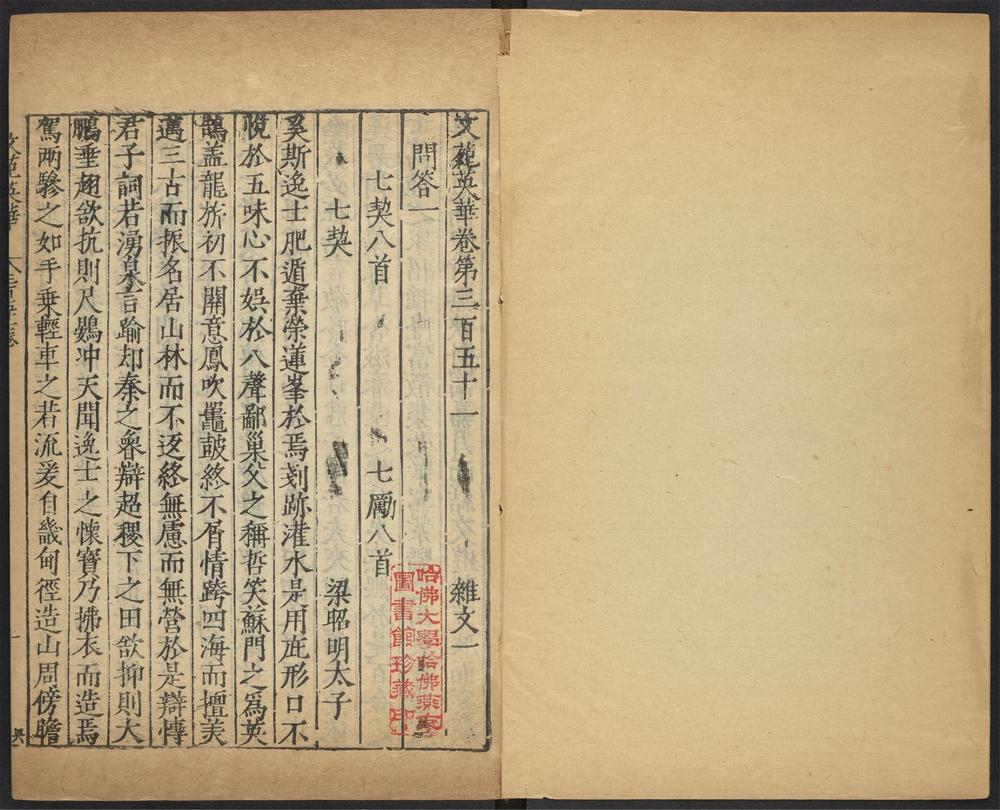 文苑英華卷第三百五十一 雜文一
問答一
七契八首 七勵八首
七契 梁昭明太子
奚斯逸士肥遁棄榮蓮峯於焉刻跡灌水是用庇形口不
恱於五味心不娛於八聲鄙巢父之稱哲笑蘇門之爲英
鵠盖龍旂初不關意鳳吹鼉鼓終不屑情跨四海而擅美
邁三古而振名居山林而不返終無慮而無營於是辯愽
君子詞若湧泉言踰却秦之魯辯超稷下之田欲抑則大
鵬垂翅欲抗則尺鷃冲天聞逸士之懷寶乃拂衣而造焉
駕兩驂之如手乗輕車之若流爰自畿甸徑造山周傍瞻
文苑英華
一
哈佛大學哈佛燕京
圖書館珍藏印